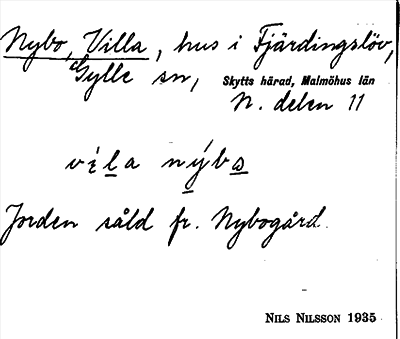 Nybo, Villa, hus i Fjärdingslöv,
Gylle sn, Skytts härad, Malmöhus län
N. delen 11
víla nýbo
Jorden såld fr. Nybogård.
NILS NILSSON 1935